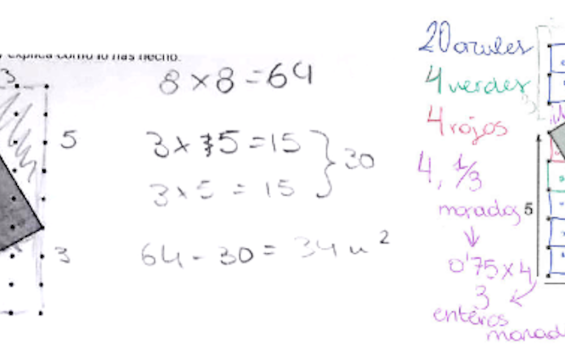 y explica cómo lo has hecho.
3
8 x 8 = 64
5
3 x 5 = 15
3 x 5 = 15
30
3
64 - 30 = 34 u²
20 azules
4 verdes
4 rojos
4, 1/3
morados
5
0'75 x 4
3
enteros